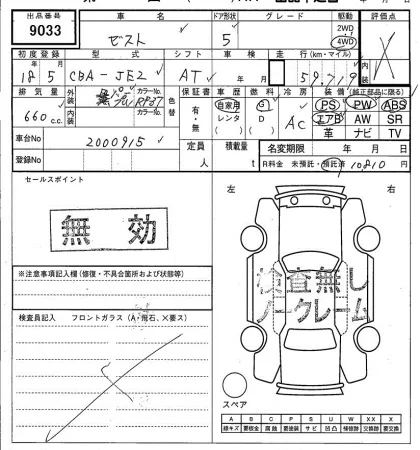 出品番号 車名 ドア形状 グレード 駆動 評価点
9033 ゼスト 5 2WD
4WD
初度登録 型式 シフト 車検 走行(km・マイル) 内装
18年5月 CBA-JE2 AT 年 月 59,719
排気量 外装 カラーNo. 色替 保証書 車歴 燃料 冷房 装備(純正部品に限る)
660c.c. 内装 カラーNo. 有・無 自家用 レンタ G D AC PS PW ABS
エアB AW SR
革 ナビ TV
車台No 2000915 定員 人 積載量 t 名変期限 年 月 日
登録No R料金 未預託・預託済 10810円
セールスポイント
無効
左 右
※注意事項記入欄(修復・不具合箇所および状態等)
検査員記入 フロントガラス(A・飛石、X要ス)
検査無し
ノークレーム
スペア
A B C P S U W XX X
線キズ 要板金 腐蝕 要塗装 サビ 凹凸 補修跡 交換跡 要交換